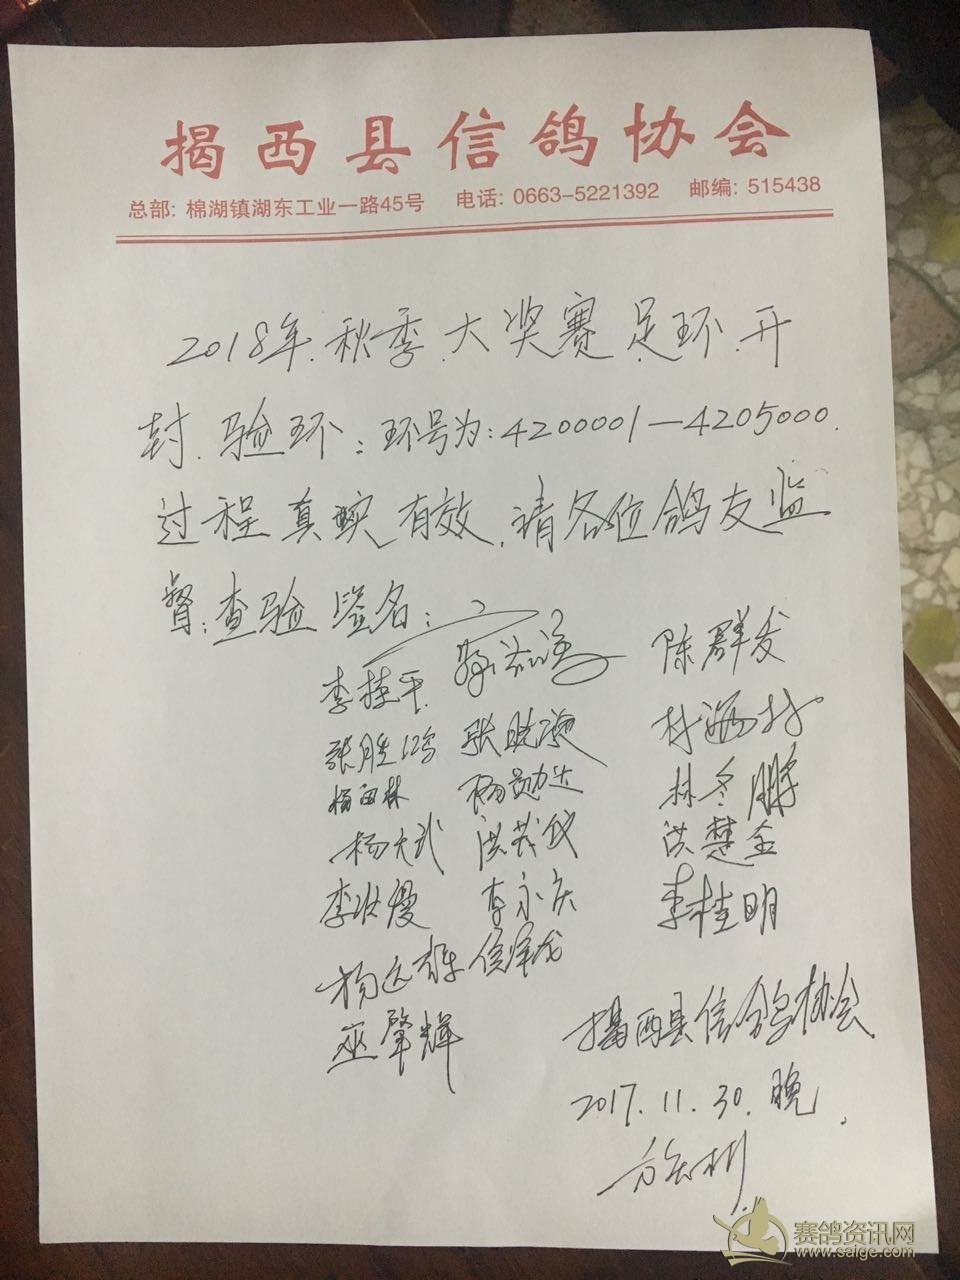 揭西县信鸽协会
总部: 棉湖镇湖东工业一路45号 电话: 0663-5221392 邮编: 515438
2018年.秋季.大奖赛足环.开
封.验环:环号为:4200001—4205000.
过程真实有效.请各位鸽友监
督:查验鉴名:
李桂平 陈群发
张胜鸿 张胜
杨 林 杨勋达 林冬鹏
杨大武 洪 洪楚金
李 李永庆 李桂明
杨远雄
巫肇辉 揭西县信鸽协会
2017.11.30.晚.
赛鸽资讯网
www.saige.com